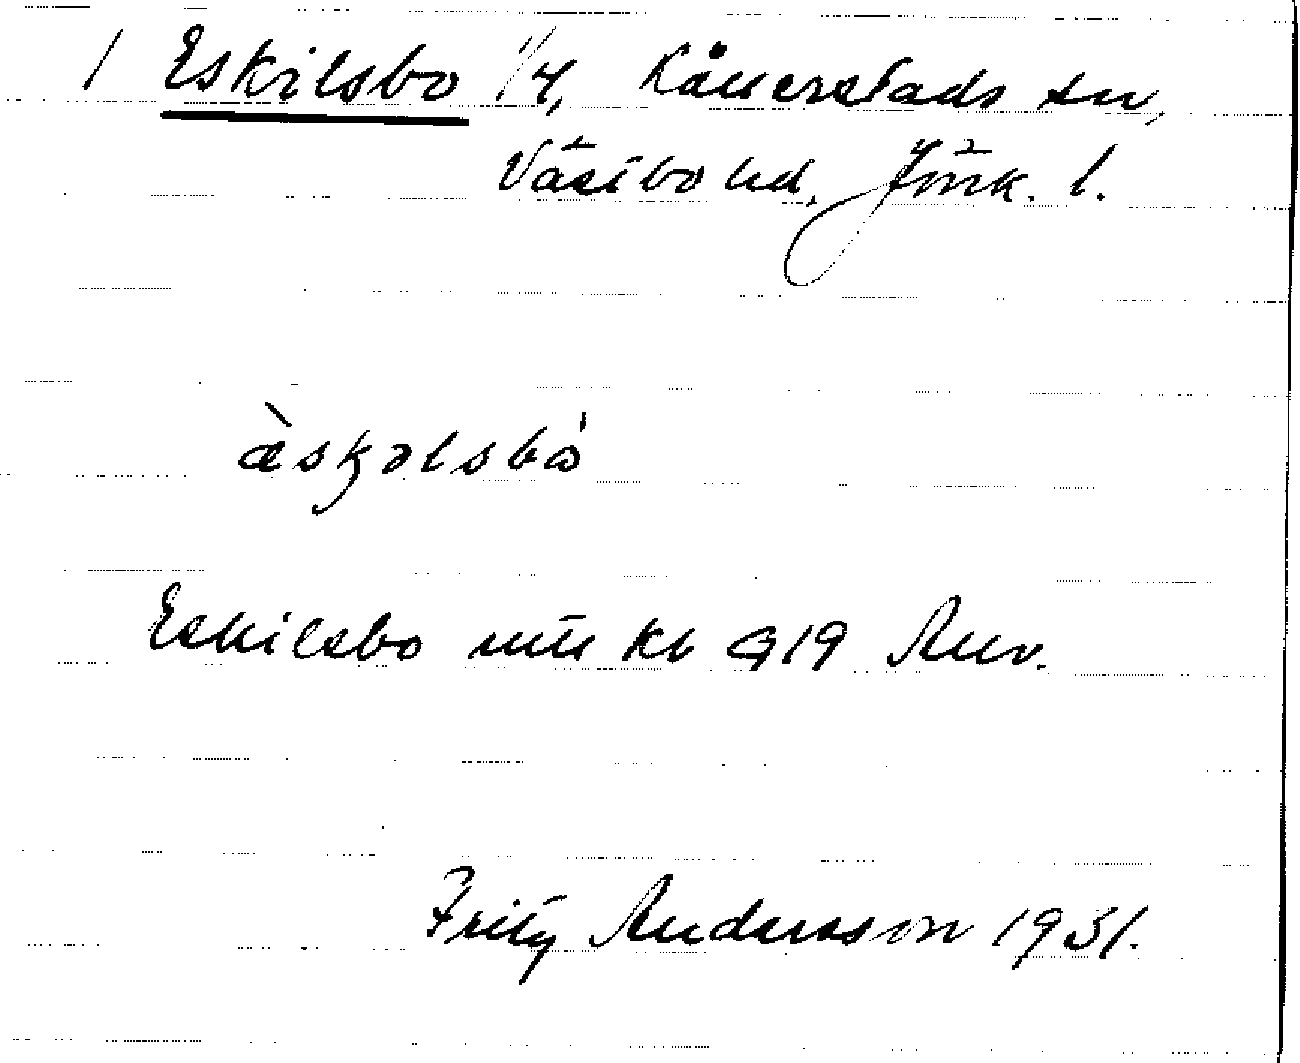 / Eskilsbo 1/4, Kållerstads sn,
Västbo hd, Jönk. l.
æ̀skəlsbó
Eskilsbo mtl Kb 919 Anv.
Fritz Andersson 1931.